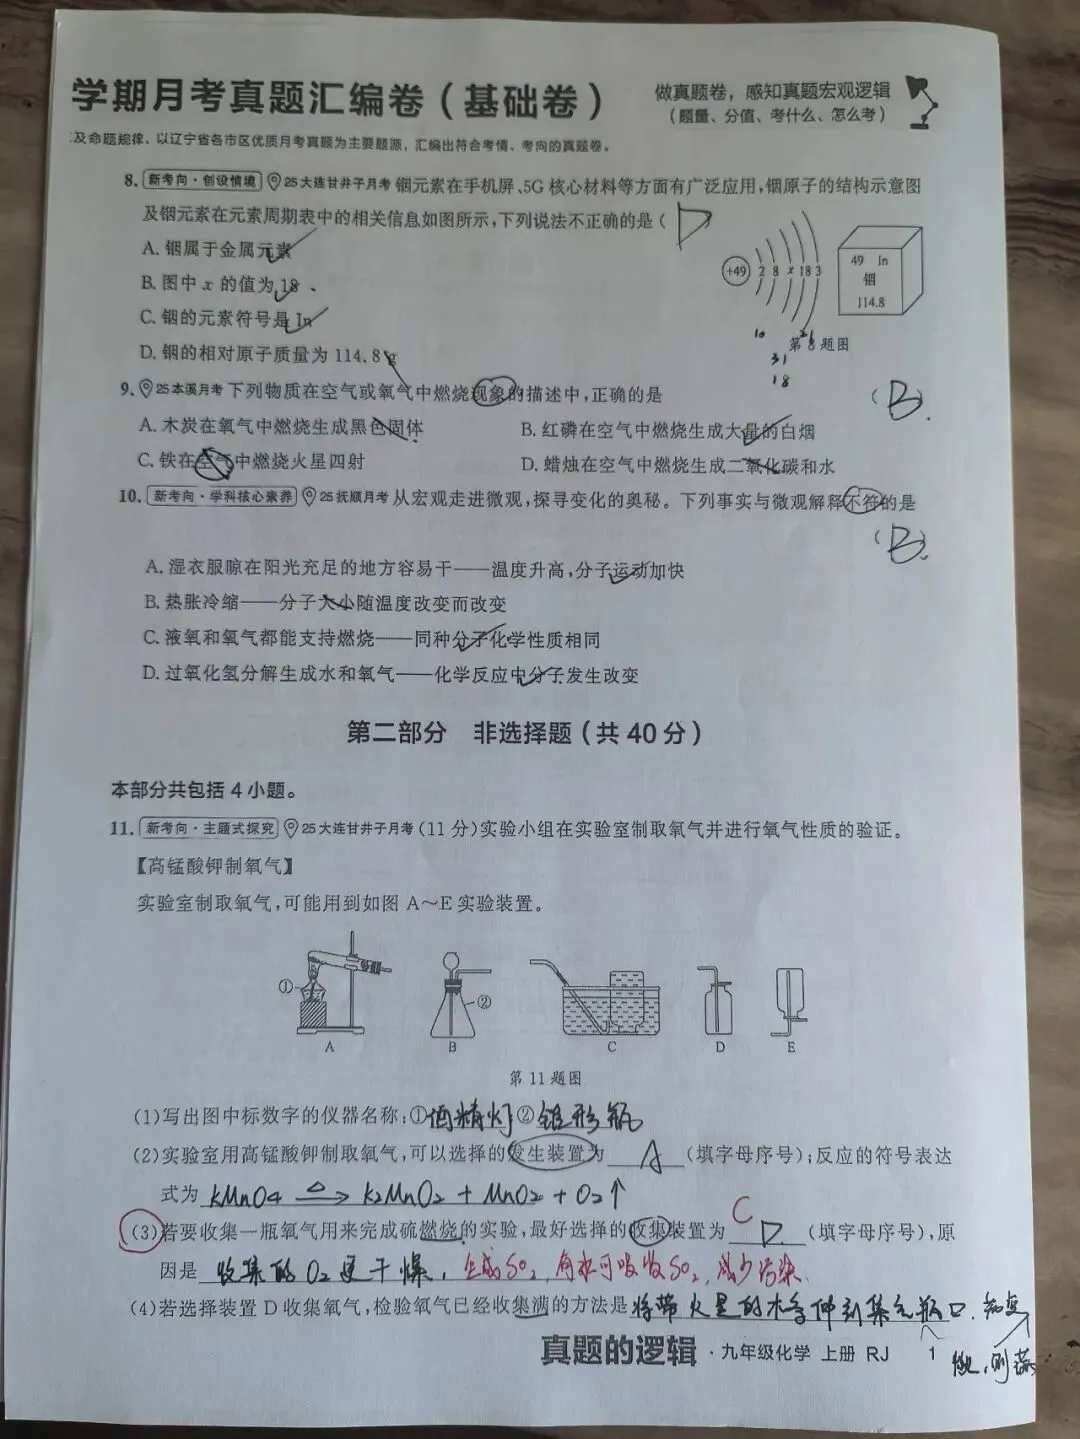 学期月考真题汇编卷(基础卷)
做真题卷,感知真题宏观逻辑
(题量、分值、考什么、怎么考)
及命题规律,以辽宁省各市区优质月考真题为主要题源,汇编出符合考情、考向的真题卷。
8. 新考向·创设情境 25大连甘井子月考 铟元素在手机屏、5G核心材料等方面有广泛应用,铟原子的结构示意图
及铟元素在元素周期表中的相关信息如图所示,下列说法不正确的是( D
A. 铟属于金属元素
B. 图中 x 的值为 18
C. 铟的元素符号是 In
D. 铟的相对原子质量为 114.8 g
+49 2 8 x 18 3
49 In
铟
114.8
第 8 题图
10
21
31
18
9. 25本溪月考 下列物质在空气或氧气中燃烧现象的描述中,正确的是
( B )
A. 木炭在氧气中燃烧生成黑色固体
B. 红磷在空气中燃烧生成大量的白烟
C. 铁在空气中燃烧火星四射
D. 蜡烛在空气中燃烧生成二氧化碳和水
10. 新考向·学科核心素养 25抚顺月考 从宏观走进微观,探寻变化的奥秘。下列事实与微观解释不符的是
( B )
A. 湿衣服晾在阳光充足的地方容易干——温度升高,分子运动加快
B. 热胀冷缩——分子大小随温度改变而改变
C. 液氧和氧气都能支持燃烧——同种分子化学性质相同
D. 过氧化氢分解生成水和氧气——化学反应中分子发生改变
第二部分 非选择题(共 40 分)
本部分共包括 4 小题。
11. 新考向·主题式探究 25大连甘井子月考 (11 分)实验小组在实验室制取氧气并进行氧气性质的验证。
【高锰酸钾制氧气】
实验室制取氧气,可能用到如图 A~E 实验装置。
① ②
A B C D E
第 11 题图
(1)写出图中标数字的仪器名称:①酒精灯②锥形瓶
(2)实验室用高锰酸钾制取氧气,可以选择的发生装置为 A (填字母序号);反应的符号表达
式为 KMnO4 △→ K2MnO2 + MnO2 + O2↑
(3)若要收集一瓶氧气用来完成硫燃烧的实验,最好选择的收集装置为 D C (填字母序号),原
因是 收集的O2更干燥, 生成SO2, 有水可吸收SO2, 减少污染.
(4)若选择装置 D 收集氧气,检验氧气已经收集满的方法是 将带火星的木条伸到集气瓶口.
真题的逻辑·九年级化学 上册 RJ 1